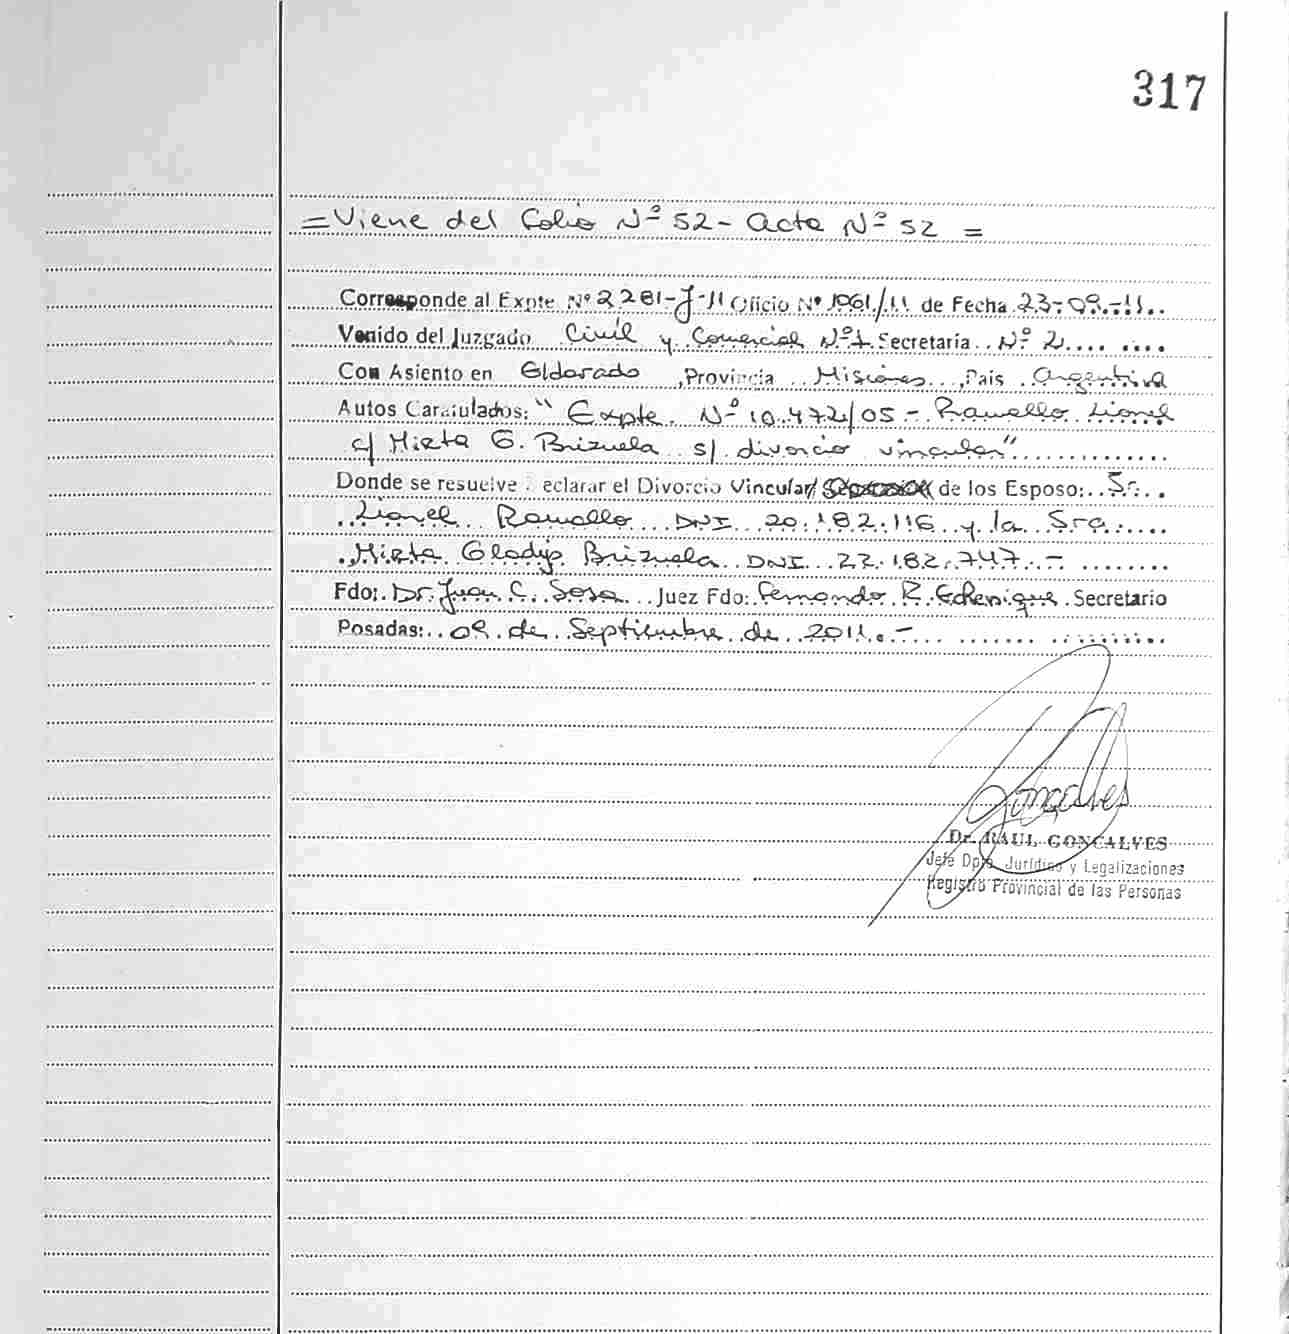 317
= Viene del Folio Nº 52 - Acta Nº 52 =
Corresponde al Expte Nº 2281-J-11 Oficio Nº 1061/11 de Fecha 23-09-11..
Venido del Juzgado Civil y Comercial Nº 1 Secretaria Nº 2
Con Asiento en Eldorado, Provincia Misiones, Pais Argentina
Autos Caratulados: " Expte. Nº 10.472/05 - Ramello Lionel
c/ Mirta G. Brizuela s/ divorcio vincular"
Donde se resuelve eclarar el Divorcio Vincular/ de los Esposo: Sr.
Lionel Ramello DNI 20.182.116 y la Sra.
Mirta Gladys Brizuela DNI 22.182.747.-
Fdo: Dr. Juan C. Sosa Juez Fdo: Fernando R. Echenique Secretario
Posadas: 09 de Septiembre de 2011.-
Goncalves
Dr. RAUL GONCALVES
Jefe Dpto. Jurídico y Legalizaciones
Registro Provincial de las Personas